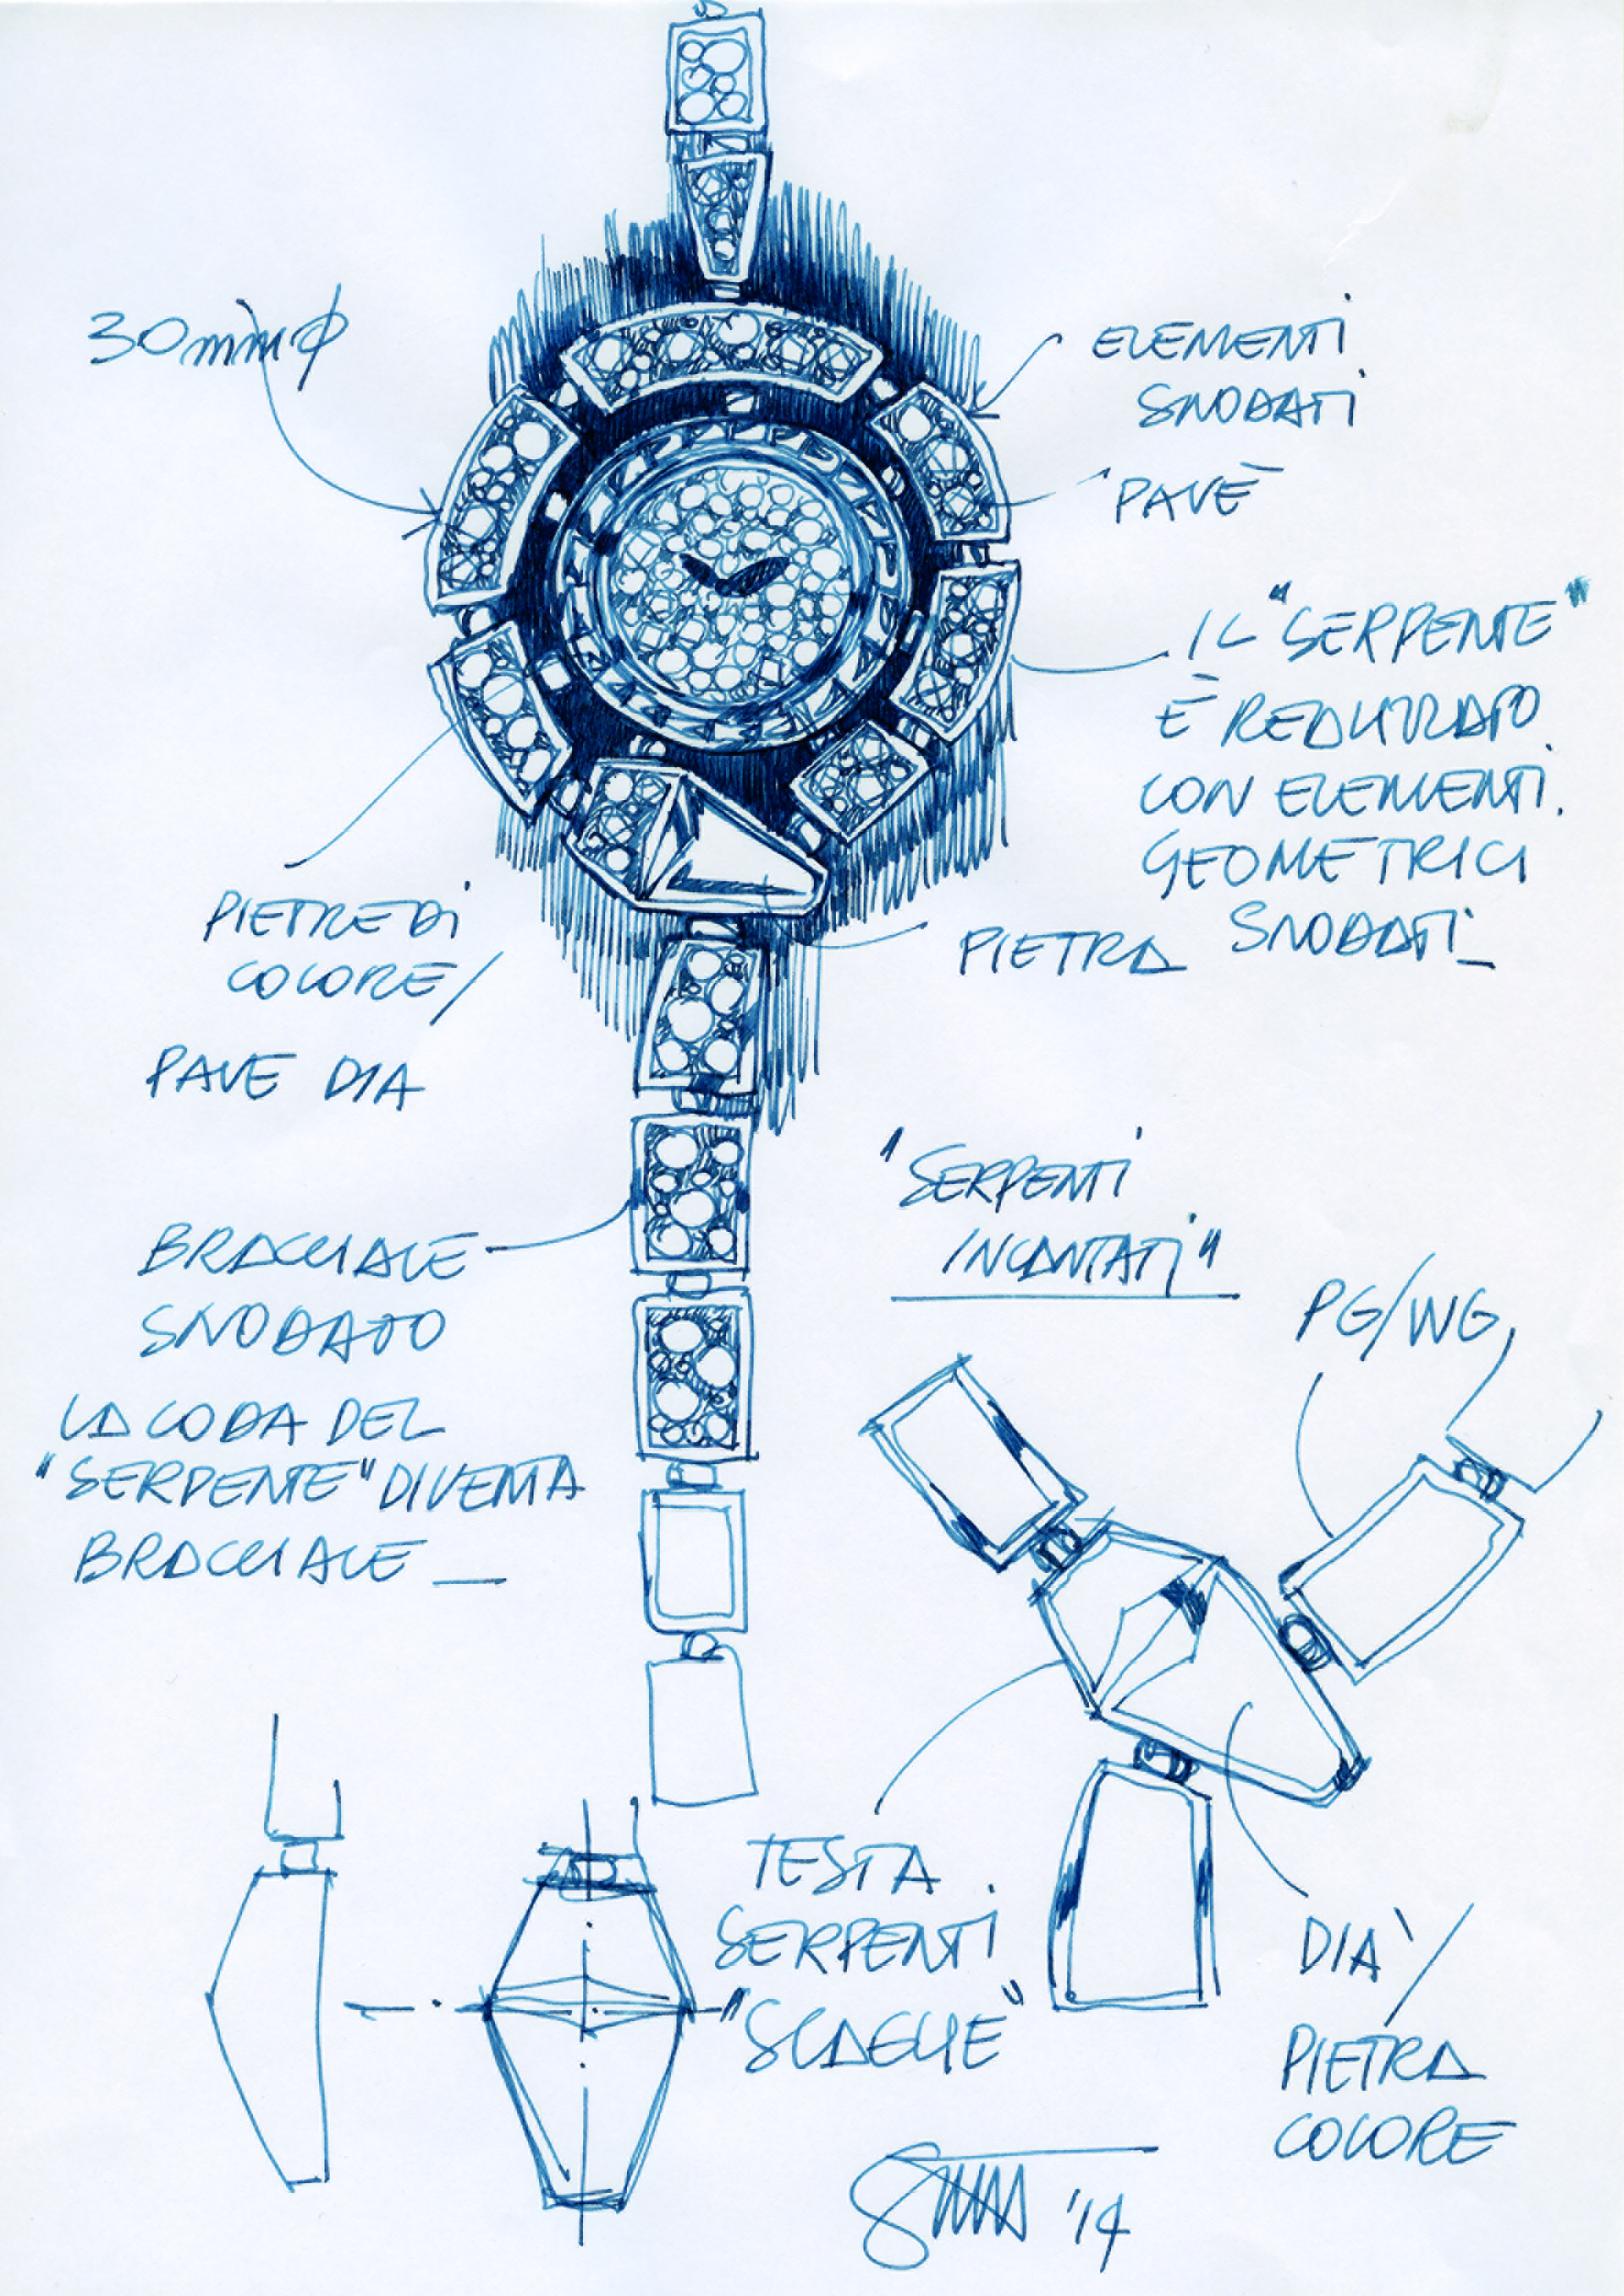 30mm ϕ
ELEMENTI
SNODATI
PAVÈ
IL "SERPENTE"
È REALIZZATO
CON ELEMENTI
GEOMETRICI
SNODATI_
PIETRA
PIETRE DI
COLORE/
PAVE DIA
BRACCIALE
SNODATO
LA CODA DEL
"SERPENTE" DIVENTA
BRACCIALE _
"SERPENTI
INCANTATI"
PG/WG
TESTA
SERPENTI
"SCAGLIE"
DIA/
PIETRA
COLORE
'14